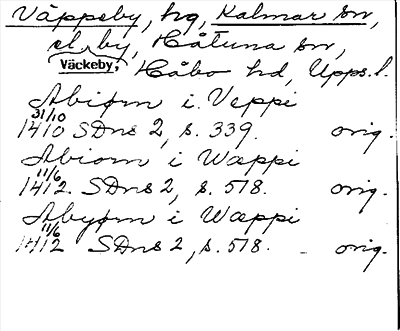 Väppeby, hg, Kalmar sn,
el. by, Håtuna sn,
Väckeby, Håbo hd, Upps. l.
Abiørn i Veppi
31/10
1410 SDns 2, s. 339. orig.
Abiorn i Wæppi
11/6
1412. SDns 2, s. 518. orig.
Abyørn i Wæppi
11/6
1412 SDns 2, s. 518. orig.